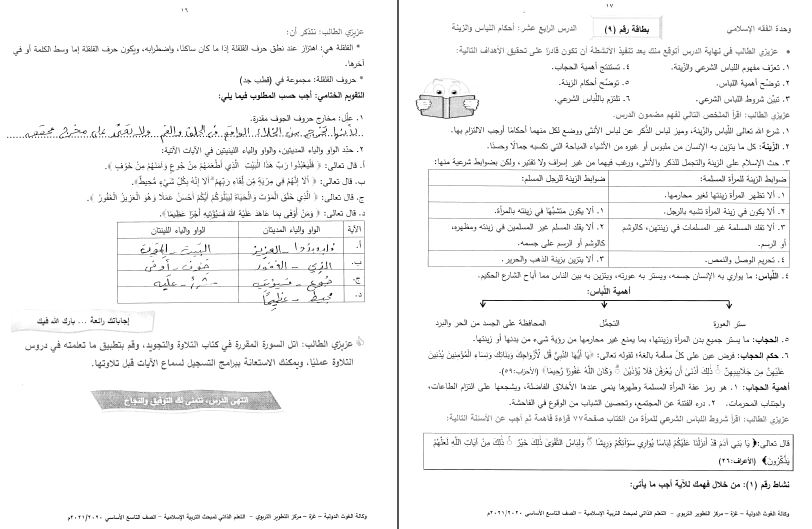 ١٧
وحدة الفقه الإسلامي
بطاقة رقم (٩)
الدرس الرابع عشر: أحكام اللباس والزينة
عزيزي الطالب في نهاية الدرس أتوقع منك بعد تنفيذ الأنشطة أن تكون قادرًا على تحقيق الأهداف التالية:
١. تعرّف مفهوم اللباس الشرعي والزّينة.
٤. تستنتج أهمية الحجاب.
٢. توضّح أهمية اللباس.
٥. توضّح أحكام الزينة.
٣. تبيّن شروط اللباس الشرعي.
٦. تلتزم باللّباس الشرعي.
عزيزي الطالب: اقرأ الملخص التالي لفهم مضمون الدرس.
١. شرع الله تعالى اللّباس والزّينة، وميز لباس الذّكر عن لباس الأنثى ووضع لكل منهما أحكامًا أوجب الالتزام بها.
٢. الزّينة: كل ما يتزين به الإنسان من ملبوس أو غيره من الأشياء المباحة التي تكسبه جمالًا وحسنًا.
٣. حث الإسلام على الزينة والتجمل للذكر والأنثى، ورغب فيهما من غير إسراف ولا تقتير، ولكن بضوابط شرعية منها:
ضوابط الزينة للمرأة المسلمة:
ضوابط الزينة للرجل المسلم:
١. ألا تظهر المرأة زينتها لغير محارمها.
٢. ألا يكون في زينة المرأة تشبه بالرجل.
١. ألا يكون متشبّهًا في زينته بالمرأة.
٣. ألا تقلد المسلمة غير المسلمات في زينتهن، كالوشم أو الرسم.
٢. ألا يقلد المسلم غير المسلمين في زينته ومظهره، كالوشم أو الرسم على جسمه.
٤. تحريم الوصل والنمص.
٣. ألا يتزين بزينة الذهب والحرير.
٤. اللّباس: ما يواري به الإنسان جسمه، ويستر به عورته، ويتزين به بين الناس مما أباح الشارع الحكيم.
أهمية اللّباس:
ستر العورة
التجمّل
المحافظة على الجسد من الحر والبرد
٥. الحجاب: ستر جميع بدن المرأة وزينتها، بما يمنع غير محارمها من رؤية شيء من بدنها أو زينتها.
٦. حكم الحجاب: فرض عين على كلّ مسلمة بالغة؛ لقوله تعالى: ﴿يَا أَيُّهَا النَّبِيُّ قُل لِّأَزْوَاجِكَ وَبَنَاتِكَ وَنِسَاءِ الْمُؤْمِنِينَ يُدْنِينَ
عَلَيْهِنَّ مِن جَلَابِيبِهِنَّ ۚ ذَٰلِكَ أَدْنَىٰ أَن يُعْرَفْنَ فَلَا يُؤْذَيْنَ ۗ وَكَانَ اللَّهُ غَفُورًا رَّحِيمًا﴾ (الأحزاب:٥٩)
أهمية الحجاب: ١. هو رمز عفة المرأة المسلمة وطهرها ينمي عندها الأخلاق الفاضلة، ويشجعها على التزام الطاعات،
واجتناب المحرمات. ٢. درء الفتنة عن المجتمع، وتحصين الشباب من الوقوع في الفاحشة.
عزيزي الطالب: اقرأ شروط اللباس الشرعي للمرأة من الكتاب صفحة٧٧ قراءة فاهمة ثم أجب عن الأسئلة التالية:
قال تعالى: ﴿يَا بَنِي آدَمَ قَدْ أَنزَلْنَا عَلَيْكُمْ لِبَاسًا يُوَارِي سَوْآتِكُمْ وَرِيشًا ۖ وَلِبَاسُ التَّقْوَىٰ ذَٰلِكَ خَيْرٌ ۚ ذَٰلِكَ مِنْ آيَاتِ اللَّهِ لَعَلَّهُمْ
يَذَّكَّرُونَ﴾ (الأعراف:٢٦)
نشاط رقم (١): من خلال فهمك للآية أجب ما يأتي:
وكالة الغوث الدولية – غزة – مركز التطوير التربوي – التعلم الذاتي لمبحث التربية الإسلامية – الصف التاسع الأساسي ٢٠٢٠/٢٠٢١م
١٦
عزيزي الطالب: تتذكر أن:
* القلقلة هي: اهتزاز عند نطق حرف القلقلة إذا ما كان ساكنًا، واضطرابه، ويكون حرف القلقلة إما وسط الكلمة أو في
آخرها.
* حروف القلقلة: مجموعة في (قطب جد)
التقويم الختامي: أجب حسب المطلوب فيما يلي:
١. علّل: مخارج حروف الجوف مقدرة.
لأنها تخرج من الخلاء الواقع في الحلق والفم ولا تعتمد على مخرج محقق
٢. حدّد الواو والياء المديتين، والواو والياء اللينيتين في الآيات الآتية:
أ. قال تعالى: ﴿ فَلْيَعْبُدُوا رَبَّ هَذَا الْبَيْتِ الَّذِي أَطْعَمَهُمْ مِنْ جُوعٍ وَآمَنَهُمْ مِنْ خَوْفٍ ﴾
ب. قال تعالى: ﴿ أَلَا إِنَّهُمْ فِي مِرْيَةٍ مِّن لِّقَاءِ رَبِّهِمْ أَلَا إِنَّهُ بِكُلِّ شَيْءٍ مُّحِيطٌ﴾.
ج. قال تعالى: ﴿ الَّذِي خَلَقَ الْمَوْتَ وَالْحَيَاةَ لِيَبْلُوَكُمْ أَيُّكُمْ أَحْسَنُ عَمَلًا وَهُوَ الْعَزِيزُ الْغَفُورُ ﴾.
د. قال تعالى: ﴿ وَمَنْ أَوْفَى بِمَا عَاهَدَ عَلَيْهُ اللَّهَ فَسَيُؤْتِيهِ أَجْرًا عَظِيمًا﴾.
الآية
الواو والياء المديتان
الواو والياء اللينتان
أ.
العزيز
البيت – الموت
ب.
الذي – الغفور
خوف – أوفى
ج.
جوع – فسيؤتيه
شيء – عليه
د.
محيط – عظيمًا
إجاباتك رائعة ... بارك الله فيك
عزيزي الطالب: اتل السورة المقررة في كتاب التلاوة والتجويد، وقم بتطبيق ما تعلمته في دروس
التلاوة عمليًا، ويمكنك الاستعانة ببرامج التسجيل لسماع الآيات قبل تلاوتها.
انتهى الدرس، نتمنى لك التوفيق والنجاح
وكالة الغوث الدولية – غزة – مركز التطوير التربوي – التعلم الذاتي لمبحث التربية الإسلامية – الصف التاسع الأساسي ٢٠٢٠/٢٠٢١م